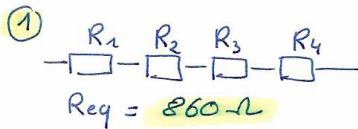 1
R1 R2 R3 R4
Req = 860 Ω